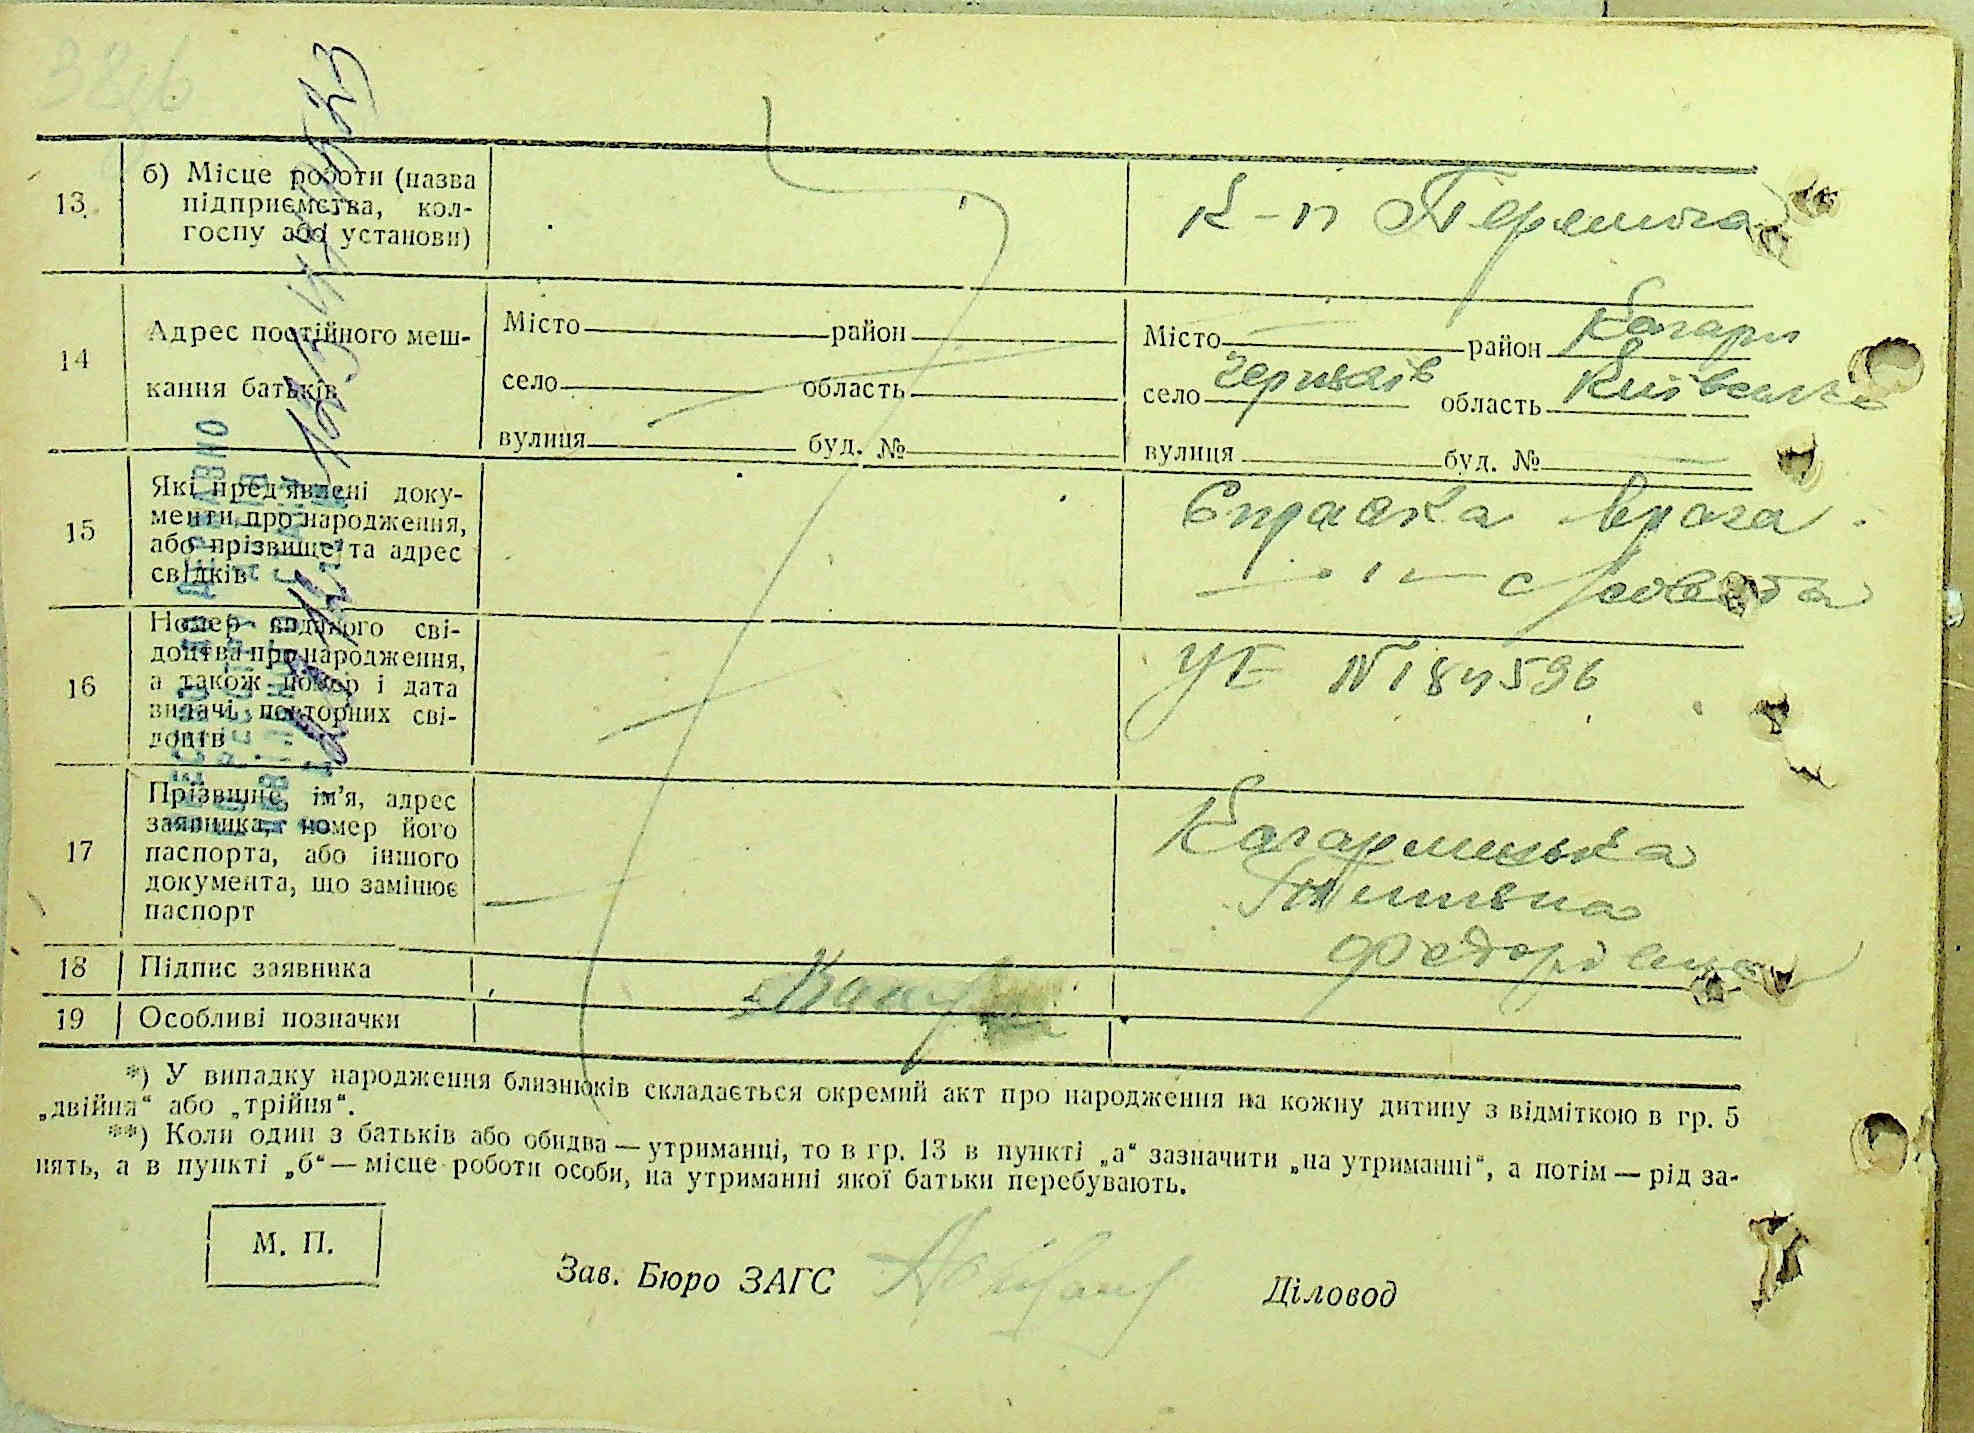 13
б) Місце роботи (назва
підприємства, кол-
госпу або установи)
К-п Перемога
14
Адрес постійного меш-
кання батьків
Місто район
село область
вулиця буд. №
Місто район Кагарл
село Черняхів область Київська
вулиця буд. №
15
Які пред'явлені доку-
менти про народження,
або прізвище та адрес
свідків
Справка врача
с/совета
16
Номер виданого сві-
доцтва про народження,
а також номер і дата
видачі повторних сві-
доцтв
УЕ №184596
17
Прізвище, ім'я, адрес
заявника, номер його
паспорта, або іншого
документа, що замінює
паспорт
Кагарлицька
Федорівна
18
Підпис заявника
19
Особливі позначки
*) У випадку народження близнюків складається окремий акт про народження на кожну дитину з відміткою в гр. 5
„двійня“ або „трійня“.
**) Коли один з батьків або обидва — утриманці, то в гр. 13 в пункті „а“ зазначити „на утриманні“, а потім — рід за-
нять, а в пункті „б“ — місце роботи особи, на утриманні якої батьки перебувають.
М. П.
Зав. Бюро ЗАГС
Діловод